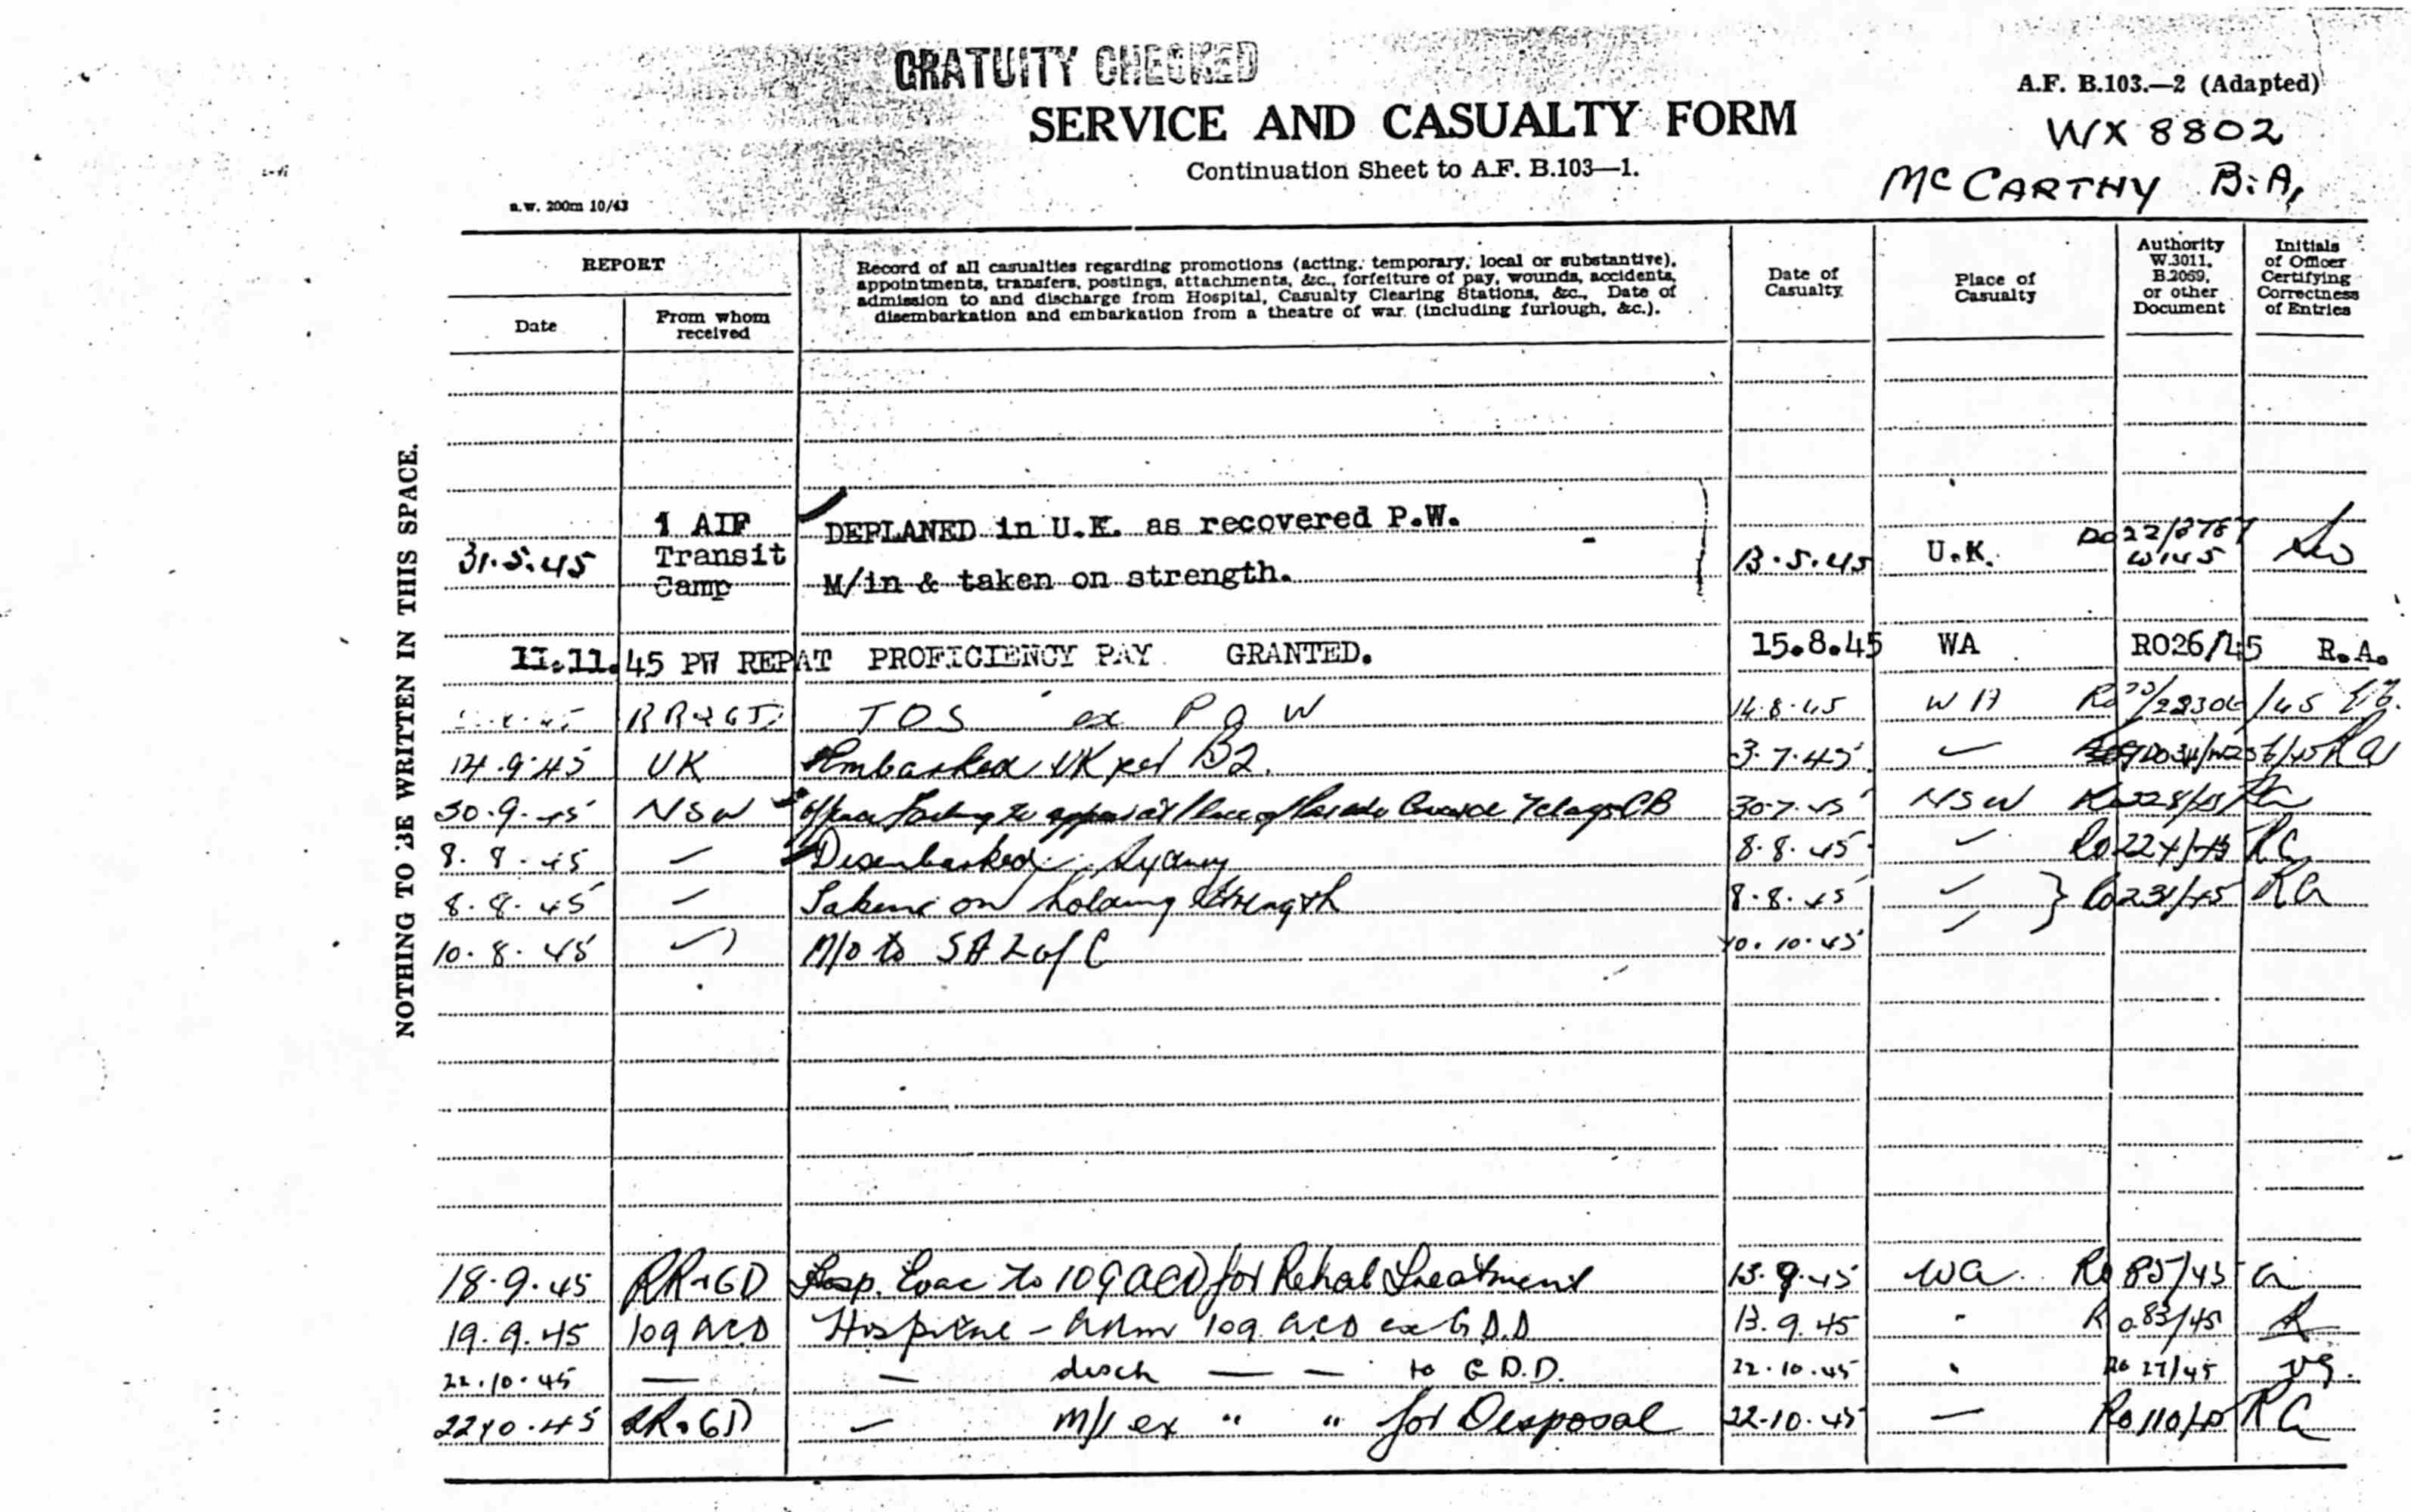 GRATUITY CHECKED
A.F. B.103.—2 (Adapted)
SERVICE AND CASUALTY FORM
WX 8802
Continuation Sheet to A.F. B.103—1.
McCARTHY B.A,
a.w. 200m 10/43
NOTHING TO BE WRITTEN IN THIS SPACE.
REPORT
Date
From whom received
Record of all casualties regarding promotions (acting, temporary, local or substantive),
appointments, transfers, postings, attachments, &c., forfeiture of pay, wounds, accidents,
admission to and discharge from Hospital, Casualty Clearing Stations, &c., Date of
disembarkation and embarkation from a theatre of war (including furlough, &c.).
Date of Casualty.
Place of Casualty
Authority W.3011, B.2069, or other Document
Initials of Officer Certifying Correctness of Entries
1 AIF DEPLANED in U.K. as recovered P.W.
31.5.45 Transit 13.5.45 U.K.
Camp M/in & taken on strength.
11.11.45 PW REPAT PROFICIENCY PAY GRANTED. 15.8.45 WA RO26/45 R.A.
RR&GD TOS ex P O W 14.8.45 WA
14.9.45 UK Embarked UK per B2. 3.7.45
30.9.45 NSW to at Place of Parade 7 days CB 30.7.45 NSW
8.8.45 Disembarked Sydney 8.8.45 RA
8.8.45 Taken on holding strength 8.8.45 Ro231/45 RA
10.8.45 M/o to SA L of C 10.10.45
18.9.45 RR&GD Hosp. Evac to 109 ACD for Rehab Treatment 13.9.45 WA Ro 85/45
19.9.45 109 ACD 109 ACD ex G.D.D 13.9.45 Ro 83/45
22.10.45 — — disch — — to G.D.D. 22.10.45 Ro 27/45
22.10.45 RR&GD m/i ex " " for Disposal 22.10.45 — Ro 110/45 RA